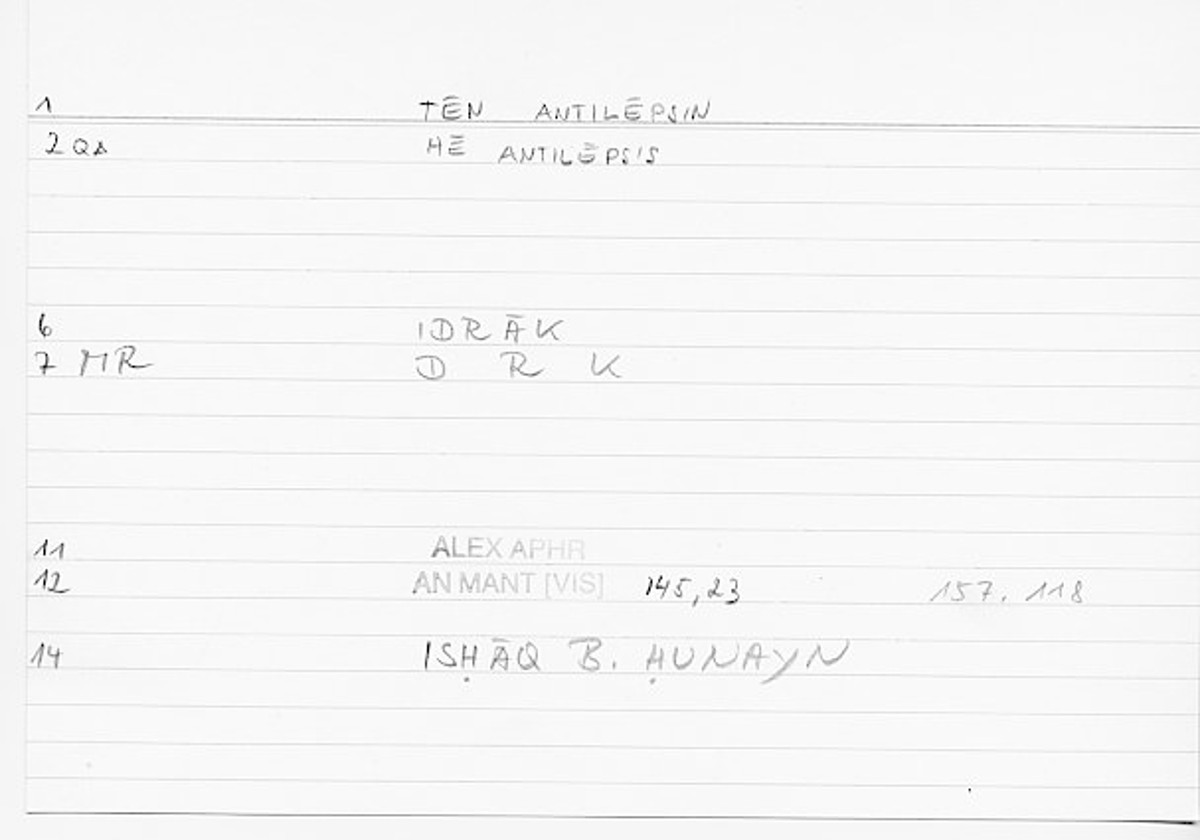 1 TĒN ANTILĒPSIN
2 QA HĒ ANTILĒPSIS
6 IDRĀK
7 MR D R K
11 ALEX APHR
12 AN MANT [VIS] 145,23 157. 118
14 ISḤĀQ B. ḤUNAYN